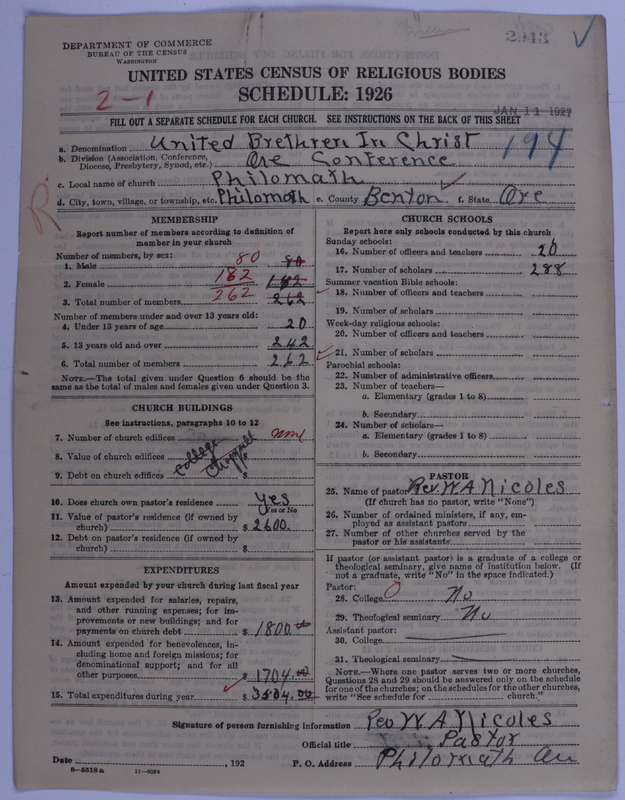 2943
DEPARTMENT OF COMMERCE
BUREAU OF THE CENSUS
WASHINGTON
UNITED STATES CENSUS OF RELIGIOUS BODIES
SCHEDULE: 1926
2-1
JAN 11 1927
FILL OUT A SEPARATE SCHEDULE FOR EACH CHURCH. SEE INSTRUCTIONS ON THE BACK OF THIS SHEET
194
a. Denomination United Brethren In Christ
b. Division (Association, Conference, Diocese, Presbytery, Synod, etc.) Ore Conference
c. Local name of church Philomath
R
d. City, town, village, or township, etc. Philomath e. County Benton f. State Ore
MEMBERSHIP
Report number of members according to definition of
member in your church
Number of members, by sex:
1. Male 80 80
2. Female 182 182
3. Total number of members 262 262
Number of members under and over 13 years old:
4. Under 13 years of age 20
5. 13 years old and over 242
6. Total number of members 262
NOTE.—The total given under Question 6 should be the
same as the total of males and females given under Question 3.
CHURCH BUILDINGS
See instructions, paragraphs 10 to 12
7. Number of church edifices
8. Value of church edifices College $
9. Debt on church edifices $
10. Does church own pastor's residence Yes
Yes or No
11. Value of pastor's residence (if owned by
church) $ 2600.
12. Debt on pastor's residence (if owned by
church) $
EXPENDITURES
Amount expended by your church during last fiscal year
13. Amount expended for salaries, repairs,
and other running expenses; for im-
provements or new buildings; and for
payments on church debt $ 1800.00
14. Amount expended for benevolences, in-
cluding home and foreign missions; for
denominational support; and for all
other purposes $ 1704.00
15. Total expenditures during year $ 3504.00
CHURCH SCHOOLS
Report here only schools conducted by this church
Sunday schools:
16. Number of officers and teachers 20
17. Number of scholars 288
Summer vacation Bible schools:
18. Number of officers and teachers
19. Number of scholars
Week-day religious schools:
20. Number of officers and teachers
21. Number of scholars
Parochial schools:
22. Number of administrative officers
23. Number of teachers—
a. Elementary (grades 1 to 8)
b. Secondary
24. Number of scholars—
a. Elementary (grades 1 to 8)
b. Secondary
PASTOR
25. Name of pastor Rev. W A Nicoles
(If church has no pastor, write "None")
26. Number of ordained ministers, if any, em-
ployed as assistant pastors
27. Number of other churches served by the
pastor or his assistants
If pastor (or assistant pastor) is a graduate of a college or
theological seminary, give name of institution below. (If
not a graduate, write "No" in the space indicated.)
Pastor:
28. College No
29. Theological seminary No
Assistant pastor:
30. College
31. Theological seminary
NOTE.—Where one pastor serves two or more churches,
Questions 28 and 29 should be answered only on the schedule
for one of the churches; on the schedules for the other churches,
write "See schedule for church."
Signature of person furnishing information Rev W A Nicoles
Official title Pastor
Date , 192 P. O. Address Philomath Ore
8-5518 a 11-9054